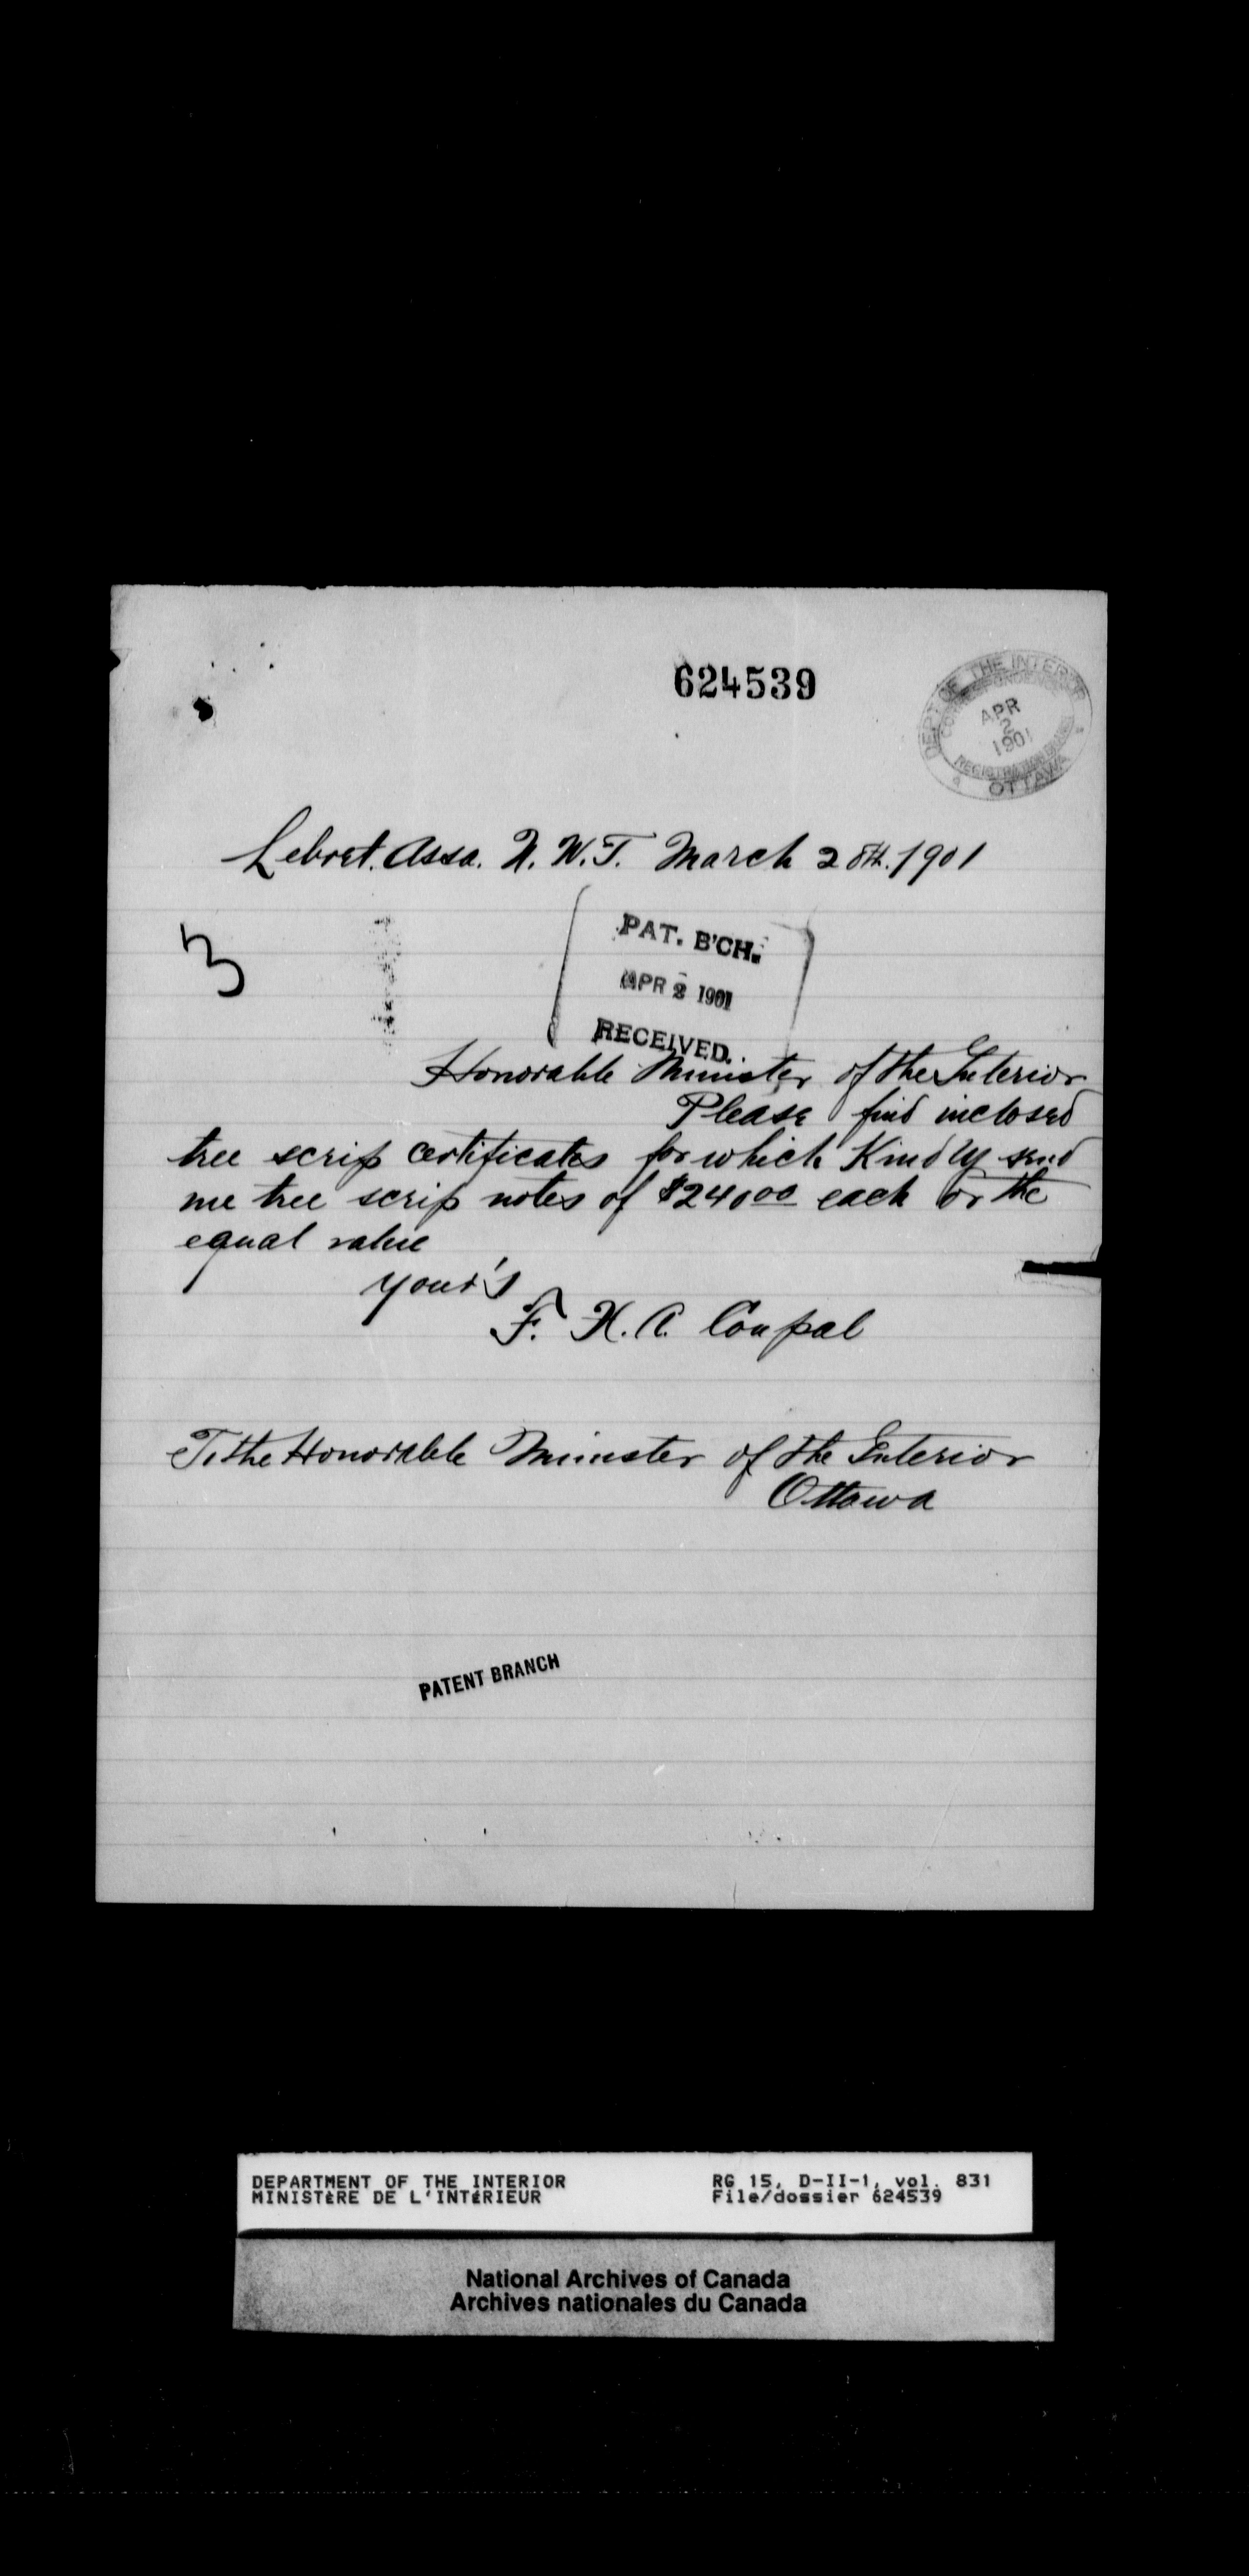 624539
DEPT OF THE INTERIOR
APR
2
1901
REGISTRATION BRANCH
OTTAWA
Lebret. Assa. N. W. T. March 28th. 1901
3
PAT. B'CH.
APR 2 1901
RECEIVED.
Honorable Minister of the Interior
Please find inclosed
tree scrip certificates for which Kindly send
me tree scrip notes of $240.00 each or the
equal value
your's
F. X. A. Coupal
To the Honorable Minister of the Interior
Ottawa
PATENT BRANCH
DEPARTMENT OF THE INTERIOR RG 15, D-II-1, vol. 831
MINISTÈRE DE L'INTÉRIEUR File/dossier 624539
National Archives of Canada
Archives nationales du Canada